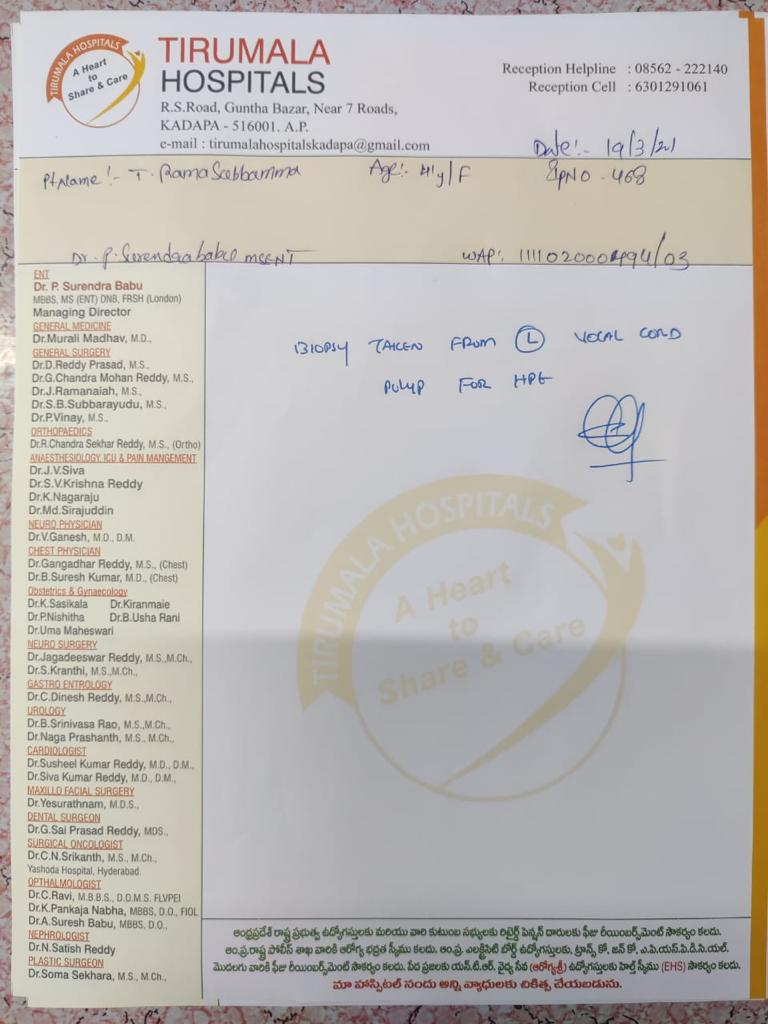 TIRUMALA HOSPITALS
A Heart
to
Share & Care
TIRUMALA
HOSPITALS
R.S.Road, Guntha Bazar, Near 7 Roads,
KADAPA - 516001. A.P.
e-mail : tirumalahospitalskadapa@gmail.com
Reception Helpline : 08562 - 222140
Reception Cell : 6301291061
Date:- 19/3/21
Pt Name:- T. Rama Subbamma Age:- 41y/F IPNO - 468
Dr. P. Surendra babu MS ENT WAP: /03
ENT
Dr. P. Surendra Babu
MBBS, MS (ENT) DNB, FRSH (London)
Managing Director
GENERAL MEDICINE
Dr.Murali Madhav, M.D.,
GENERAL SURGERY
Dr.D.Reddy Prasad, M.S.,
Dr.G.Chandra Mohan Reddy, M.S.,
Dr.J.Ramanaiah, M.S.,
Dr.S.B.Subbarayudu, M.S.,
Dr.P.Vinay, M.S.,
ORTHOPAEDICS
Dr.R.Chandra Sekhar Reddy, M.S., (Ortho)
ANAESTHESIOLOGY, ICU & PAIN MANGEMENT
Dr.J.V.Siva
Dr.S.V.Krishna Reddy
Dr.K.Nagaraju
Dr.Md.Sirajuddin
NEURO PHYSICIAN
Dr.V.Ganesh, M.D., D.M.
CHEST PHYSICIAN
Dr.Gangadhar Reddy, M.S., (Chest)
Dr.B.Suresh Kumar, M.D., (Chest)
Obstetrics & Gynaecology
Dr.K.Sasikala Dr.Kiranmaie
Dr.P.Nishitha Dr.B.Usha Rani
Dr.Uma Maheswari
NEURO SURGERY
Dr.Jagadeeswar Reddy, M.S.,M.Ch.,
Dr.S.Kranthi, M.S.,M.Ch.,
GASTRO ENTROLOGY
Dr.C.Dinesh Reddy, M.S.,M.Ch.,
UROLOGY
Dr.B.Srinivasa Rao, M.S.,M.Ch.,
Dr.Naga Prashanth, M.S., M.Ch.,
CARDIOLOGIST
Dr.Susheel Kumar Reddy, M.D., D.M.,
Dr.Siva Kumar Reddy, M.D., D.M.,
MAXILLO FACIAL SURGERY
Dr.Yesurathnam, M.D.S.,
DENTAL SURGEON
Dr.G.Sai Prasad Reddy, MDS.,
SURGICAL ONCOLOGIST
Dr.C.N.Srikanth, M.S., M.Ch.,
Yashoda Hospital, Hyderabad.
OPTHALMOLOGIST
Dr.C.Ravi, M.B.B.S., D.O.M.S. FLVPEI
Dr.K.Pankaja Nabha, MBBS, D.O., FIOL
Dr.A.Suresh Babu, MBBS, D.O.,
NEPHROLOGIST
Dr.N.Satish Reddy
PLASTIC SURGEON
Dr.Soma Sekhara, M.S., M.Ch.,
BIOPSY TAKEN FROM L VOCAL CORD
POLYP FOR HPE
TIRUMALA HOSPITALS
A Heart
to
Share & Care
ఆంధ్రప్రదేశ్ రాష్ట్ర ప్రభుత్వ ఉద్యోగస్తులకు మరియు వారి కుటుంబ సభ్యులకు రిటైర్డ్ పెన్షన్ దారులకు ఫీజు రీయింబర్స్‌మెంట్ సౌకర్యం కలదు.
ఆం.ప్ర.రాష్ట్ర పోలీస్ శాఖ వారికి ఆరోగ్య భద్రత స్కీము కలదు. ఆం.ప్ర. ఎలక్ట్రిసిటీ బోర్డ్ ఉద్యోగస్తులకు, ట్రాన్స్ కో, జన్ కో, ఎ.పి.యస్.పి.డి.సి.యల్.
మొదలగు వారికి ఫీజు రీయింబర్స్‌మెంట్ సౌకర్యం కలదు. పేద ప్రజలకు యన్.టి.ఆర్. వైద్య సేవ (ఆరోగ్యశ్రీ) ఉద్యోగస్తులకు హెల్త్ స్కీము (EHS) సౌకర్యం కలదు.
మా హాస్పిటల్ నందు అన్ని వ్యాధులకు చికిత్స చేయబడును.